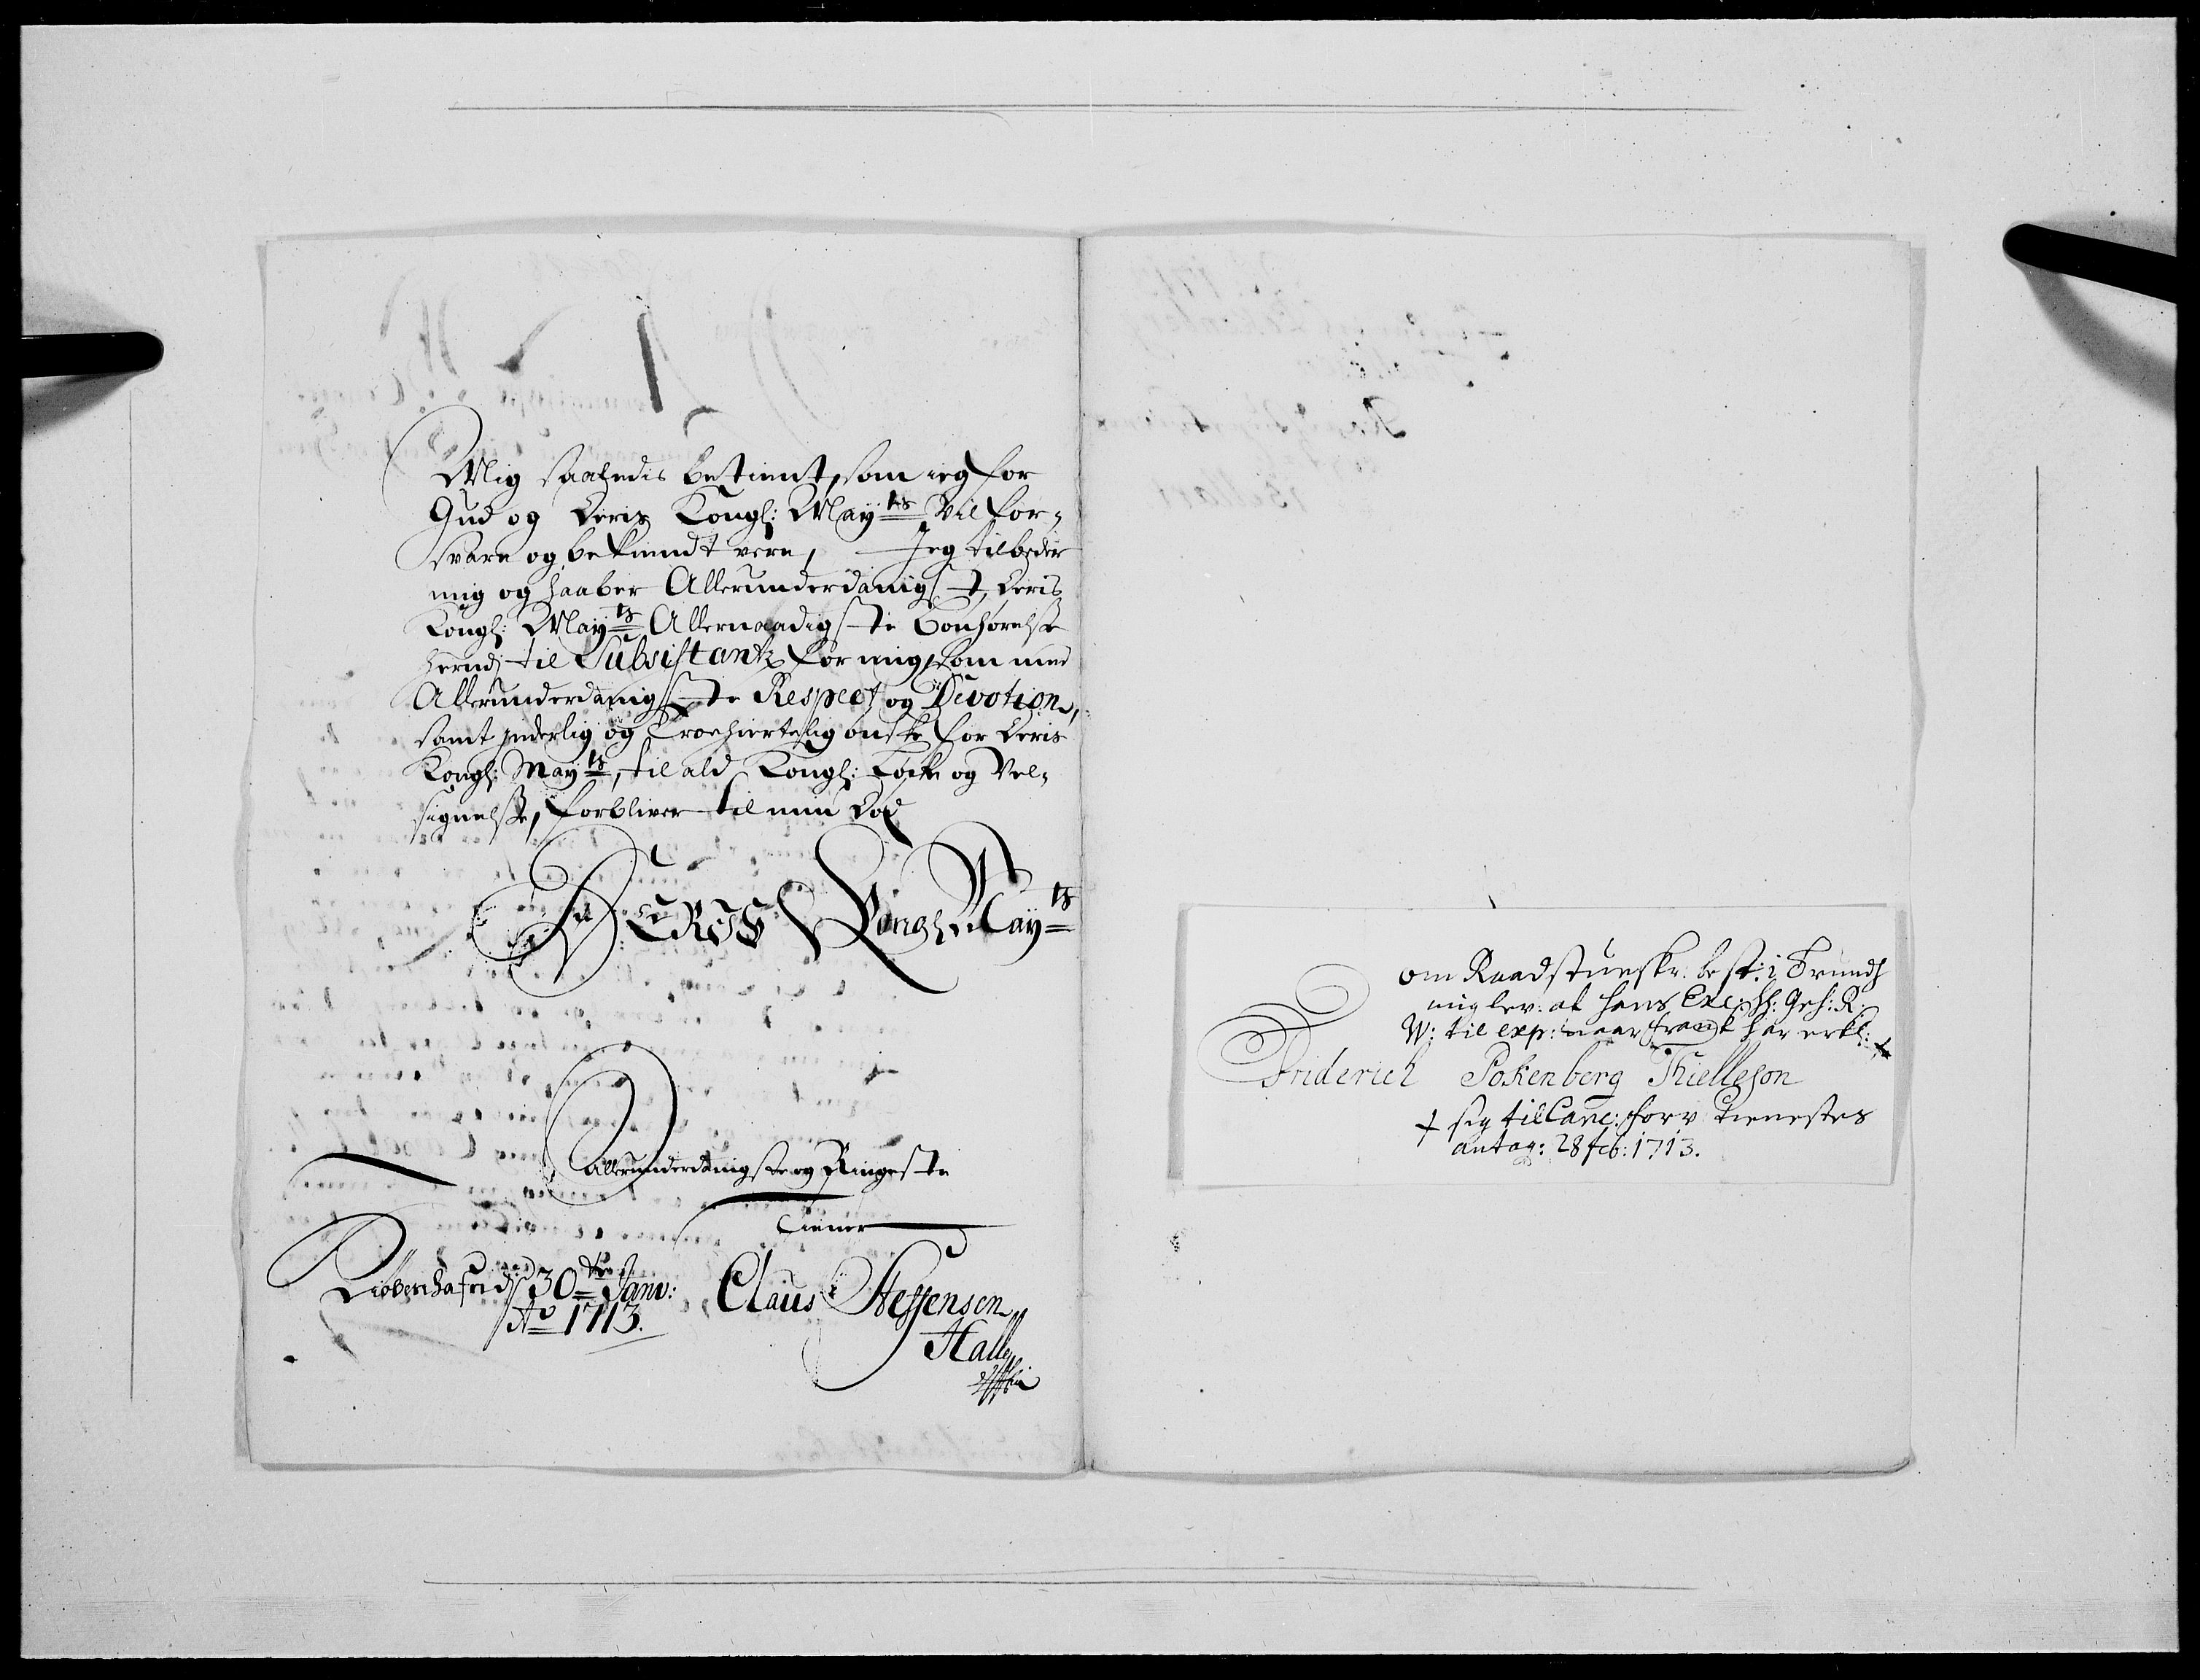 Mig saaledis betient, som ieg for
Gud og Deris Kongl: May:ts vil for-
svare og bekiendt vere, Jeg tilbeder
mig og haaber Allerunderdanigst, Deris
Kongl: May:ts Allernaadigste Bønhørelse
herudj til Subsistantz for mig, som med
Allerunderdanigste Respect og Devotion,
samt inderlig og Troehiertelig ønske for Deris
Kongl: May:ts, til ald Kongl: Løcke og Vel-
signelse, forbliver til min Død
DERIS Kongl: May:ts
Allerunderdanigste og Ringeste
Tiener
Kiøbenhafn d 30te Janv:
Ao 1713.
Claus Stessensen
Halle
om Raadstueskr: best: i Trundh
mig lev: af hans Exc: H: Geh: R:
W: til exp: naar har erkl: +
Friderich Pokenberg Thielleson
+ sig til Canc: forv Tienestes
antag: 28 feb: 1713.